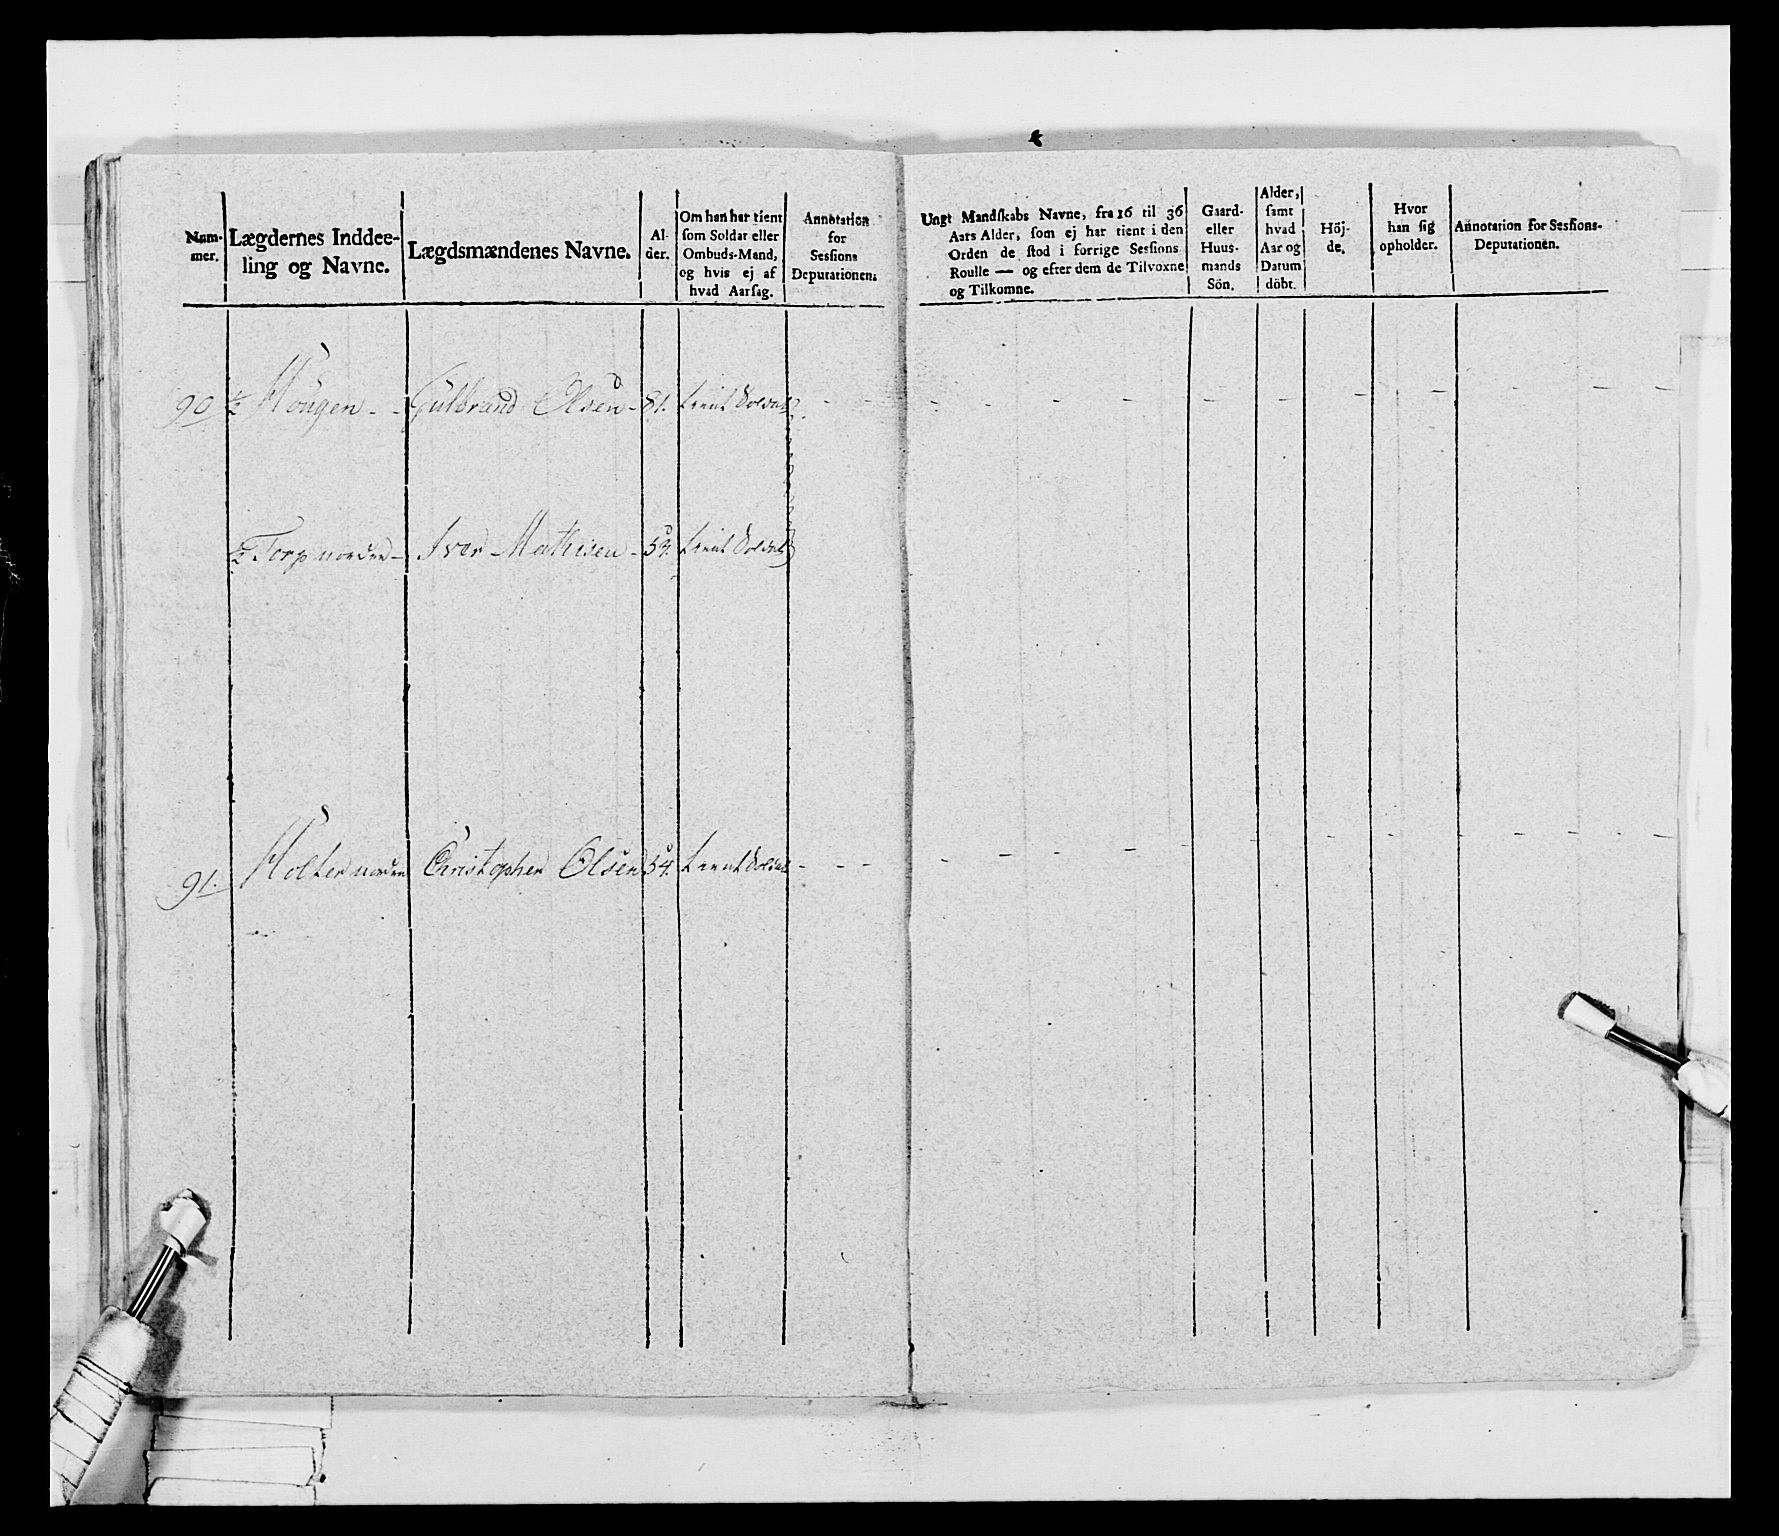 Num-
mer.
Lægdernes Inddee-
ling og Navne.
Lægdsmændenes Navne.
Al-
der.
Om han har tient
som Soldat eller
Ombuds-Mand,
og hvis ej af
hvad Aarsag.
Annotation
for
Sessions
Deputationen.
Ungt Mandskabs Navne, fra 16 til 36
Aars Alder, som ej har tient i den
Orden de stod i forrige Sessions
Roulle — og efter dem de Tilvoxne
og Tilkomne.
Gaard-
eller
Huus-
mands
Sön.
Alder,
samt
hvad
Aar og
Datum
döbt.
Höj-
de.
Hvor
han sig
opholder.
Annotation for Sessions-
Deputationen.
90 ½ Hougen - - Gulbrand Olsen - 81. tient Soldat - - - - - - - - - - - - - -
½ Torp nordre - Iver Mathisen - 59. tient Soldat
91. Holter nordre Christopher Olsen 54. tient Soldat - - - - - - - - - - - - -